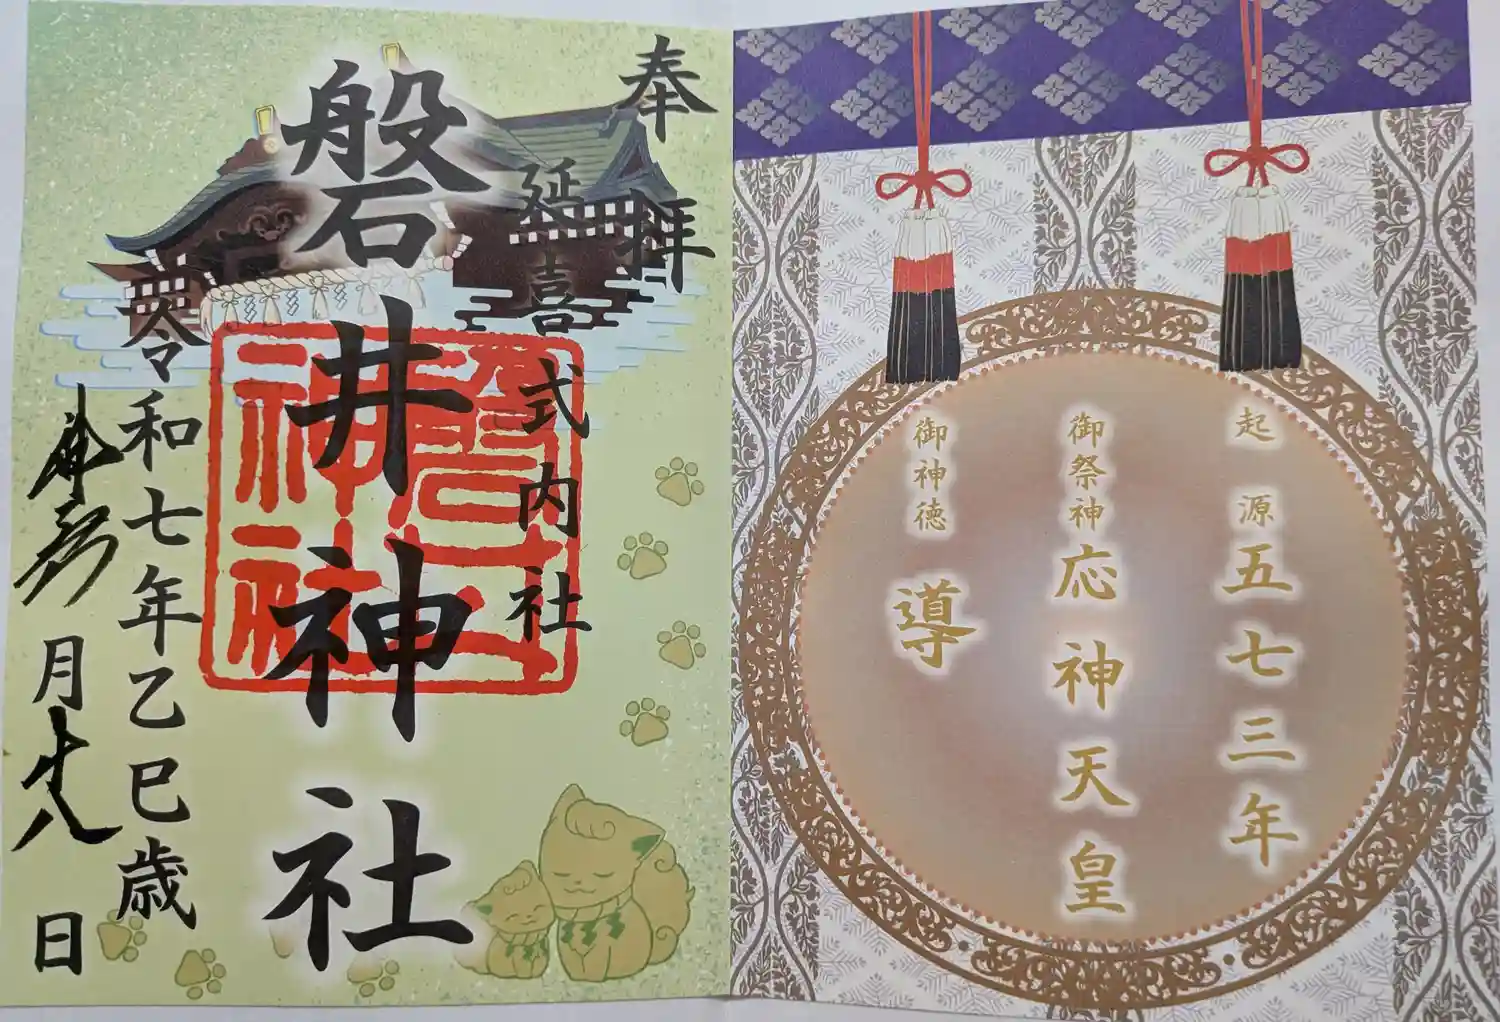 起源五七三年
御祭神 応神天皇
御神徳 導
奉拝
延喜式内社
磐井神社
磐井神社
令和七年乙巳歳
月十八日